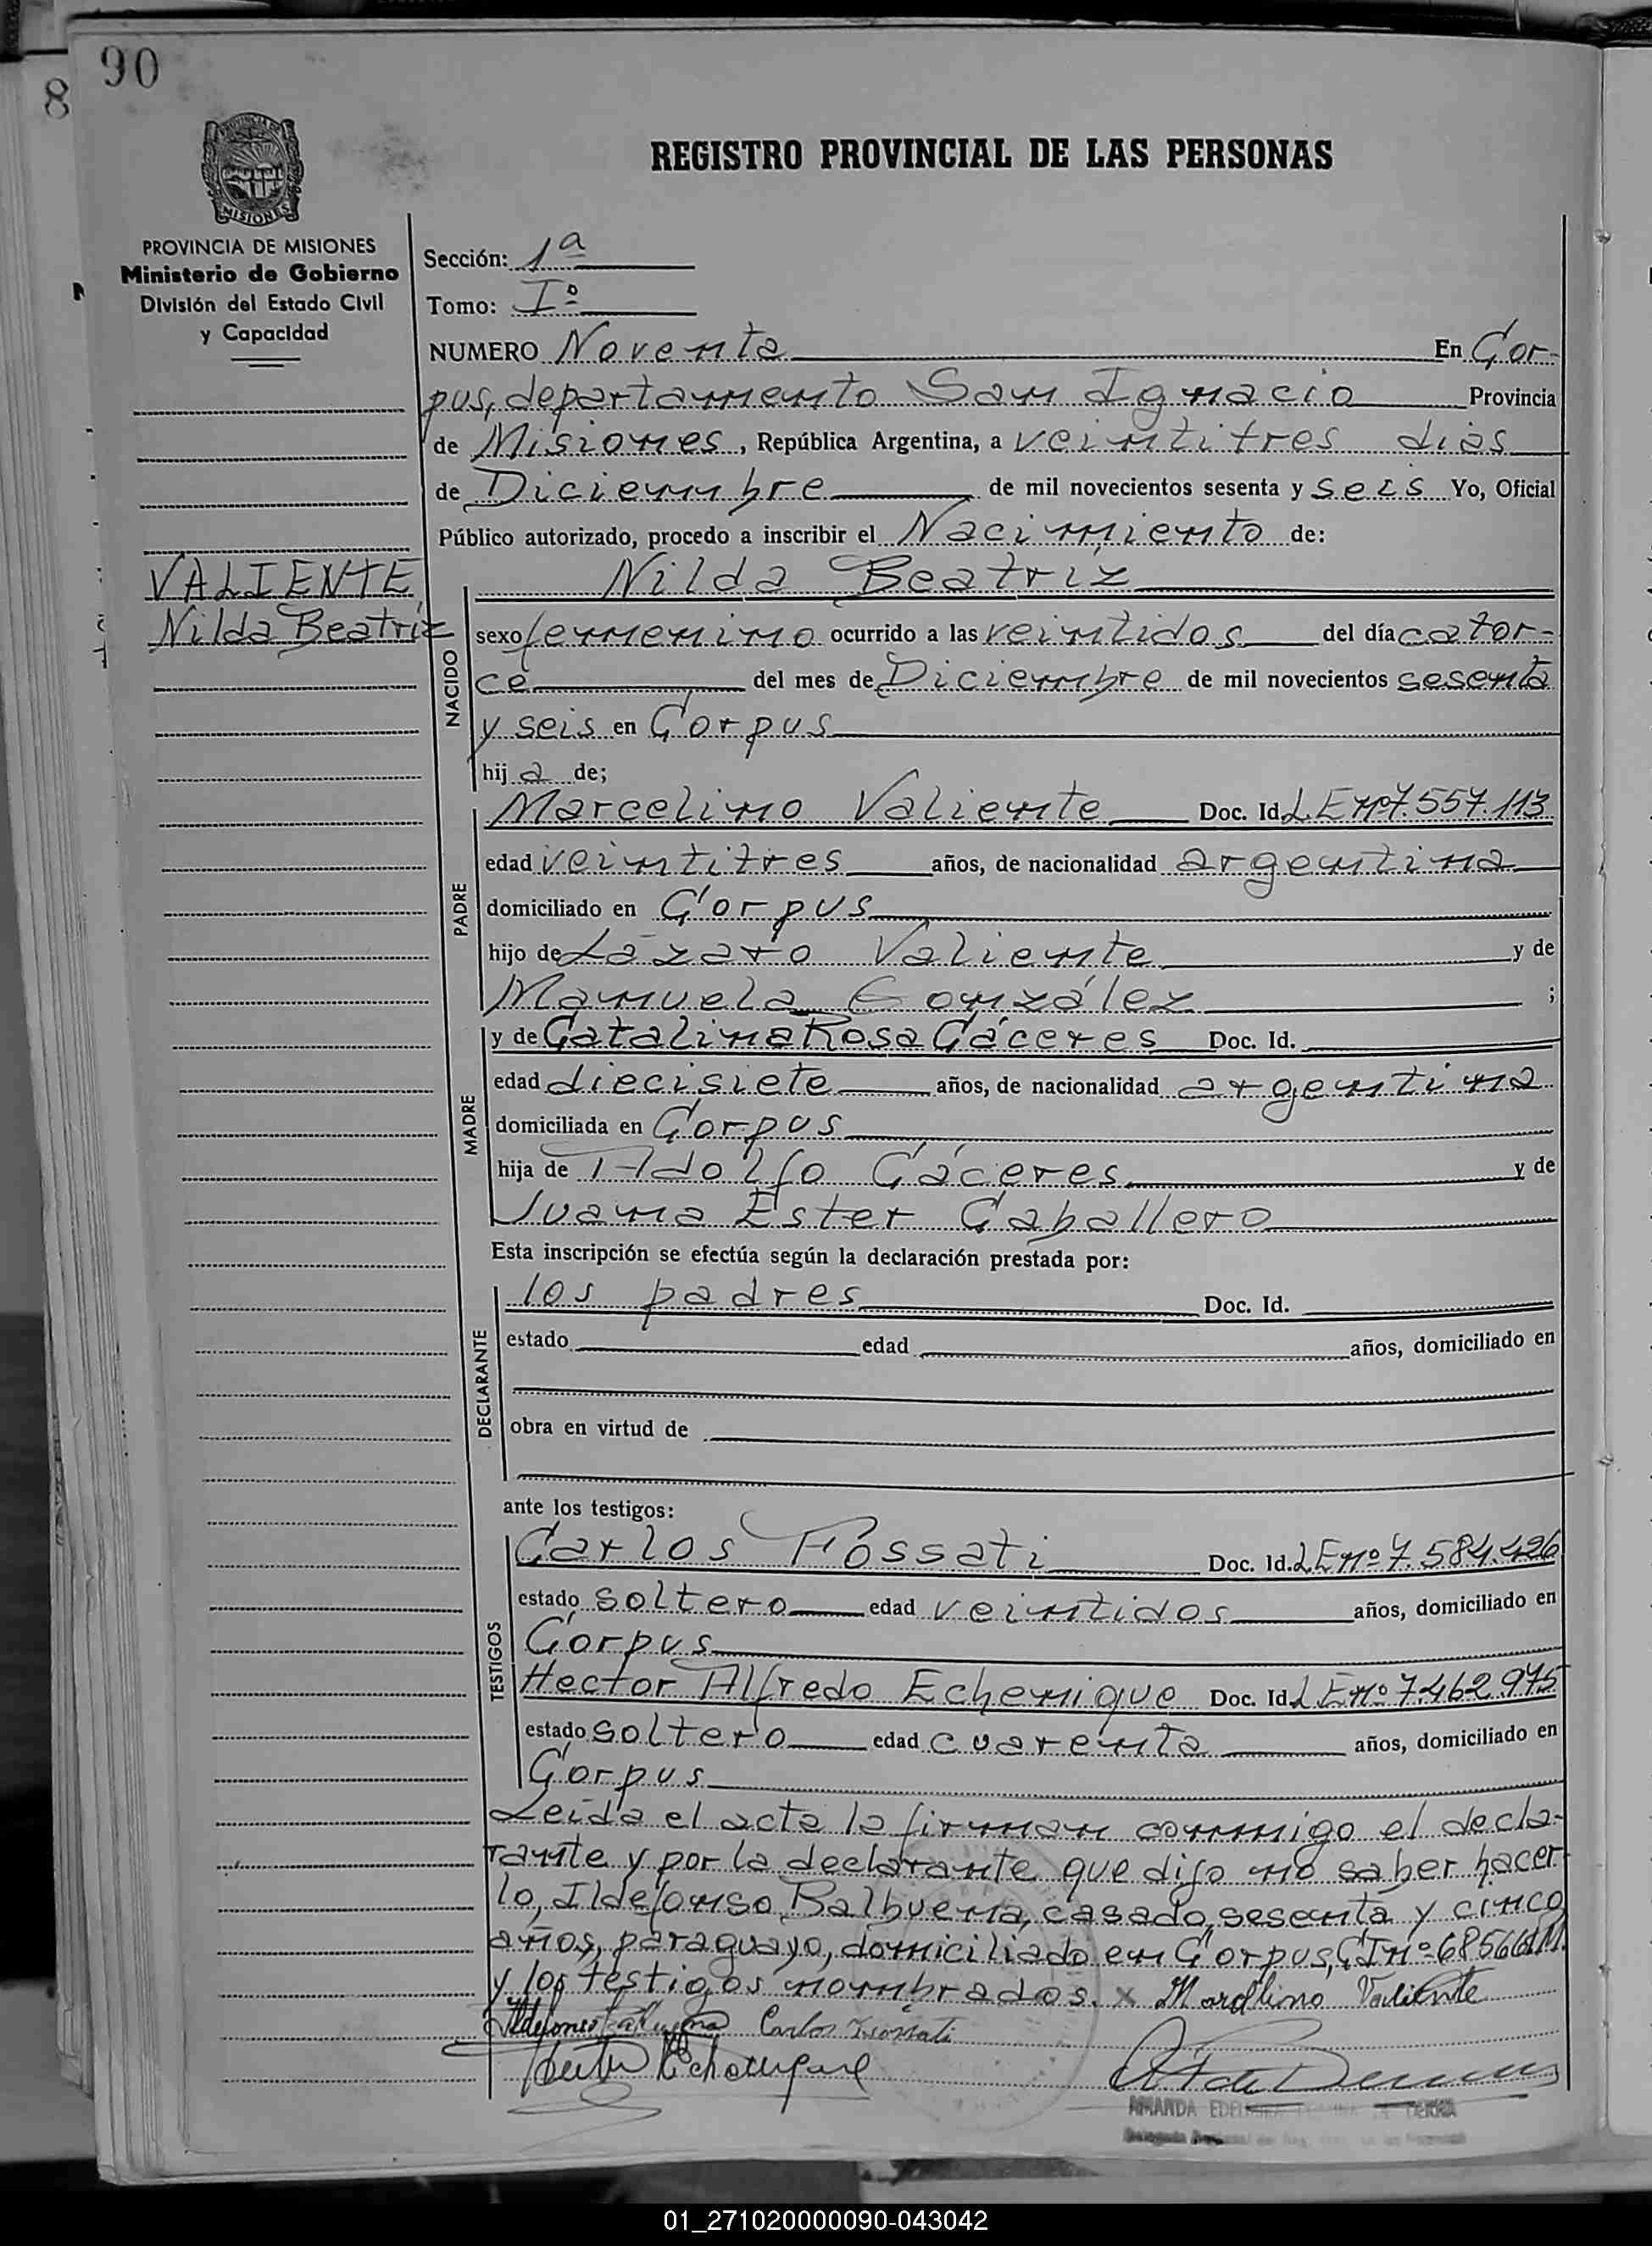 90
8
REGISTRO PROVINCIAL DE LAS PERSONAS
MISIONES
PROVINCIA DE MISIONES
Ministerio de Gobierno
División del Estado Civil
y Capacidad
Sección: 1ª
Tomo: Iº
NUMERO Noventa En Cor-
pus, departamento San Ignacio Provincia
de Misiones, República Argentina, a veintitres dias
de Diciembre de mil novecientos sesenta y seis Yo, Oficial
Público autorizado, procedo a inscribir el Nacimiento de:
VALIENTE,
Nilda Beatríz
NACIDO
Nilda Beatríz
sexo femenino ocurrido a las veintidos del día cator-
ce del mes de Diciembre de mil novecientos sesenta
y seis en Corpus
hija de;
PADRE
Marcelino Valiente Doc. Id. LE nº 7.557.113
edad veintitres años, de nacionalidad argentina
domiciliado en Corpus
hijo de Lázaro Valiente y de
Manuela González ;
MADRE
y de Catalina Rosa Cáceres Doc. Id.
edad diecisiete años, de nacionalidad argentina
domiciliada en Corpus
hija de Adolfo Cáceres y de
Juana Ester Caballero
Esta inscripción se efectúa según la declaración prestada por:
DECLARANTE
los padres Doc. Id.
estado edad años, domiciliado en
obra en virtud de
ante los testigos:
TESTIGOS
Carlos Fossati Doc. Id. LE nº 7.584.426
estado soltero edad veintidos años, domiciliado en
Corpus
Hector Alfredo Echenique Doc. Id. LE nº 7.462.975
estado soltero edad cuarenta años, domiciliado en
Corpus
Leída el acta la firman conmigo el decla-
rante y por la declarante que dijo no saber hacer
lo, Ildefonso Balbuena, casado, sesenta y cinco
años, paraguayo, domiciliado en Corpus, CI nº
y los testigos nombrados. x Marcelino Valiente
Ildefonso Balbuena Carlos Fossati
AMANDA
01_271020000090-043042